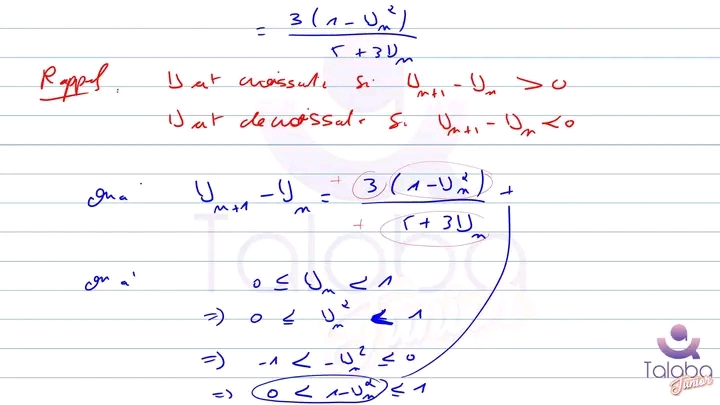 = 3(1 - U_n²) / 5 + 3U_n
Rappel : U est croissante si U_{n+1} - U_n > 0
U est decroissante si U_{n+1} - U_n < 0
on a : U_{n+1} - U_n = + 3(1 - U_n²) / + 5 + 3U_n +
on a : 0 ≤ U_n < 1
=> 0 ≤ U_n² < 1
=> -1 < -U_n² ≤ 0
=> 0 < 1 - U_n² ≤ 1
Talaba
Junior
Talaba
Junior